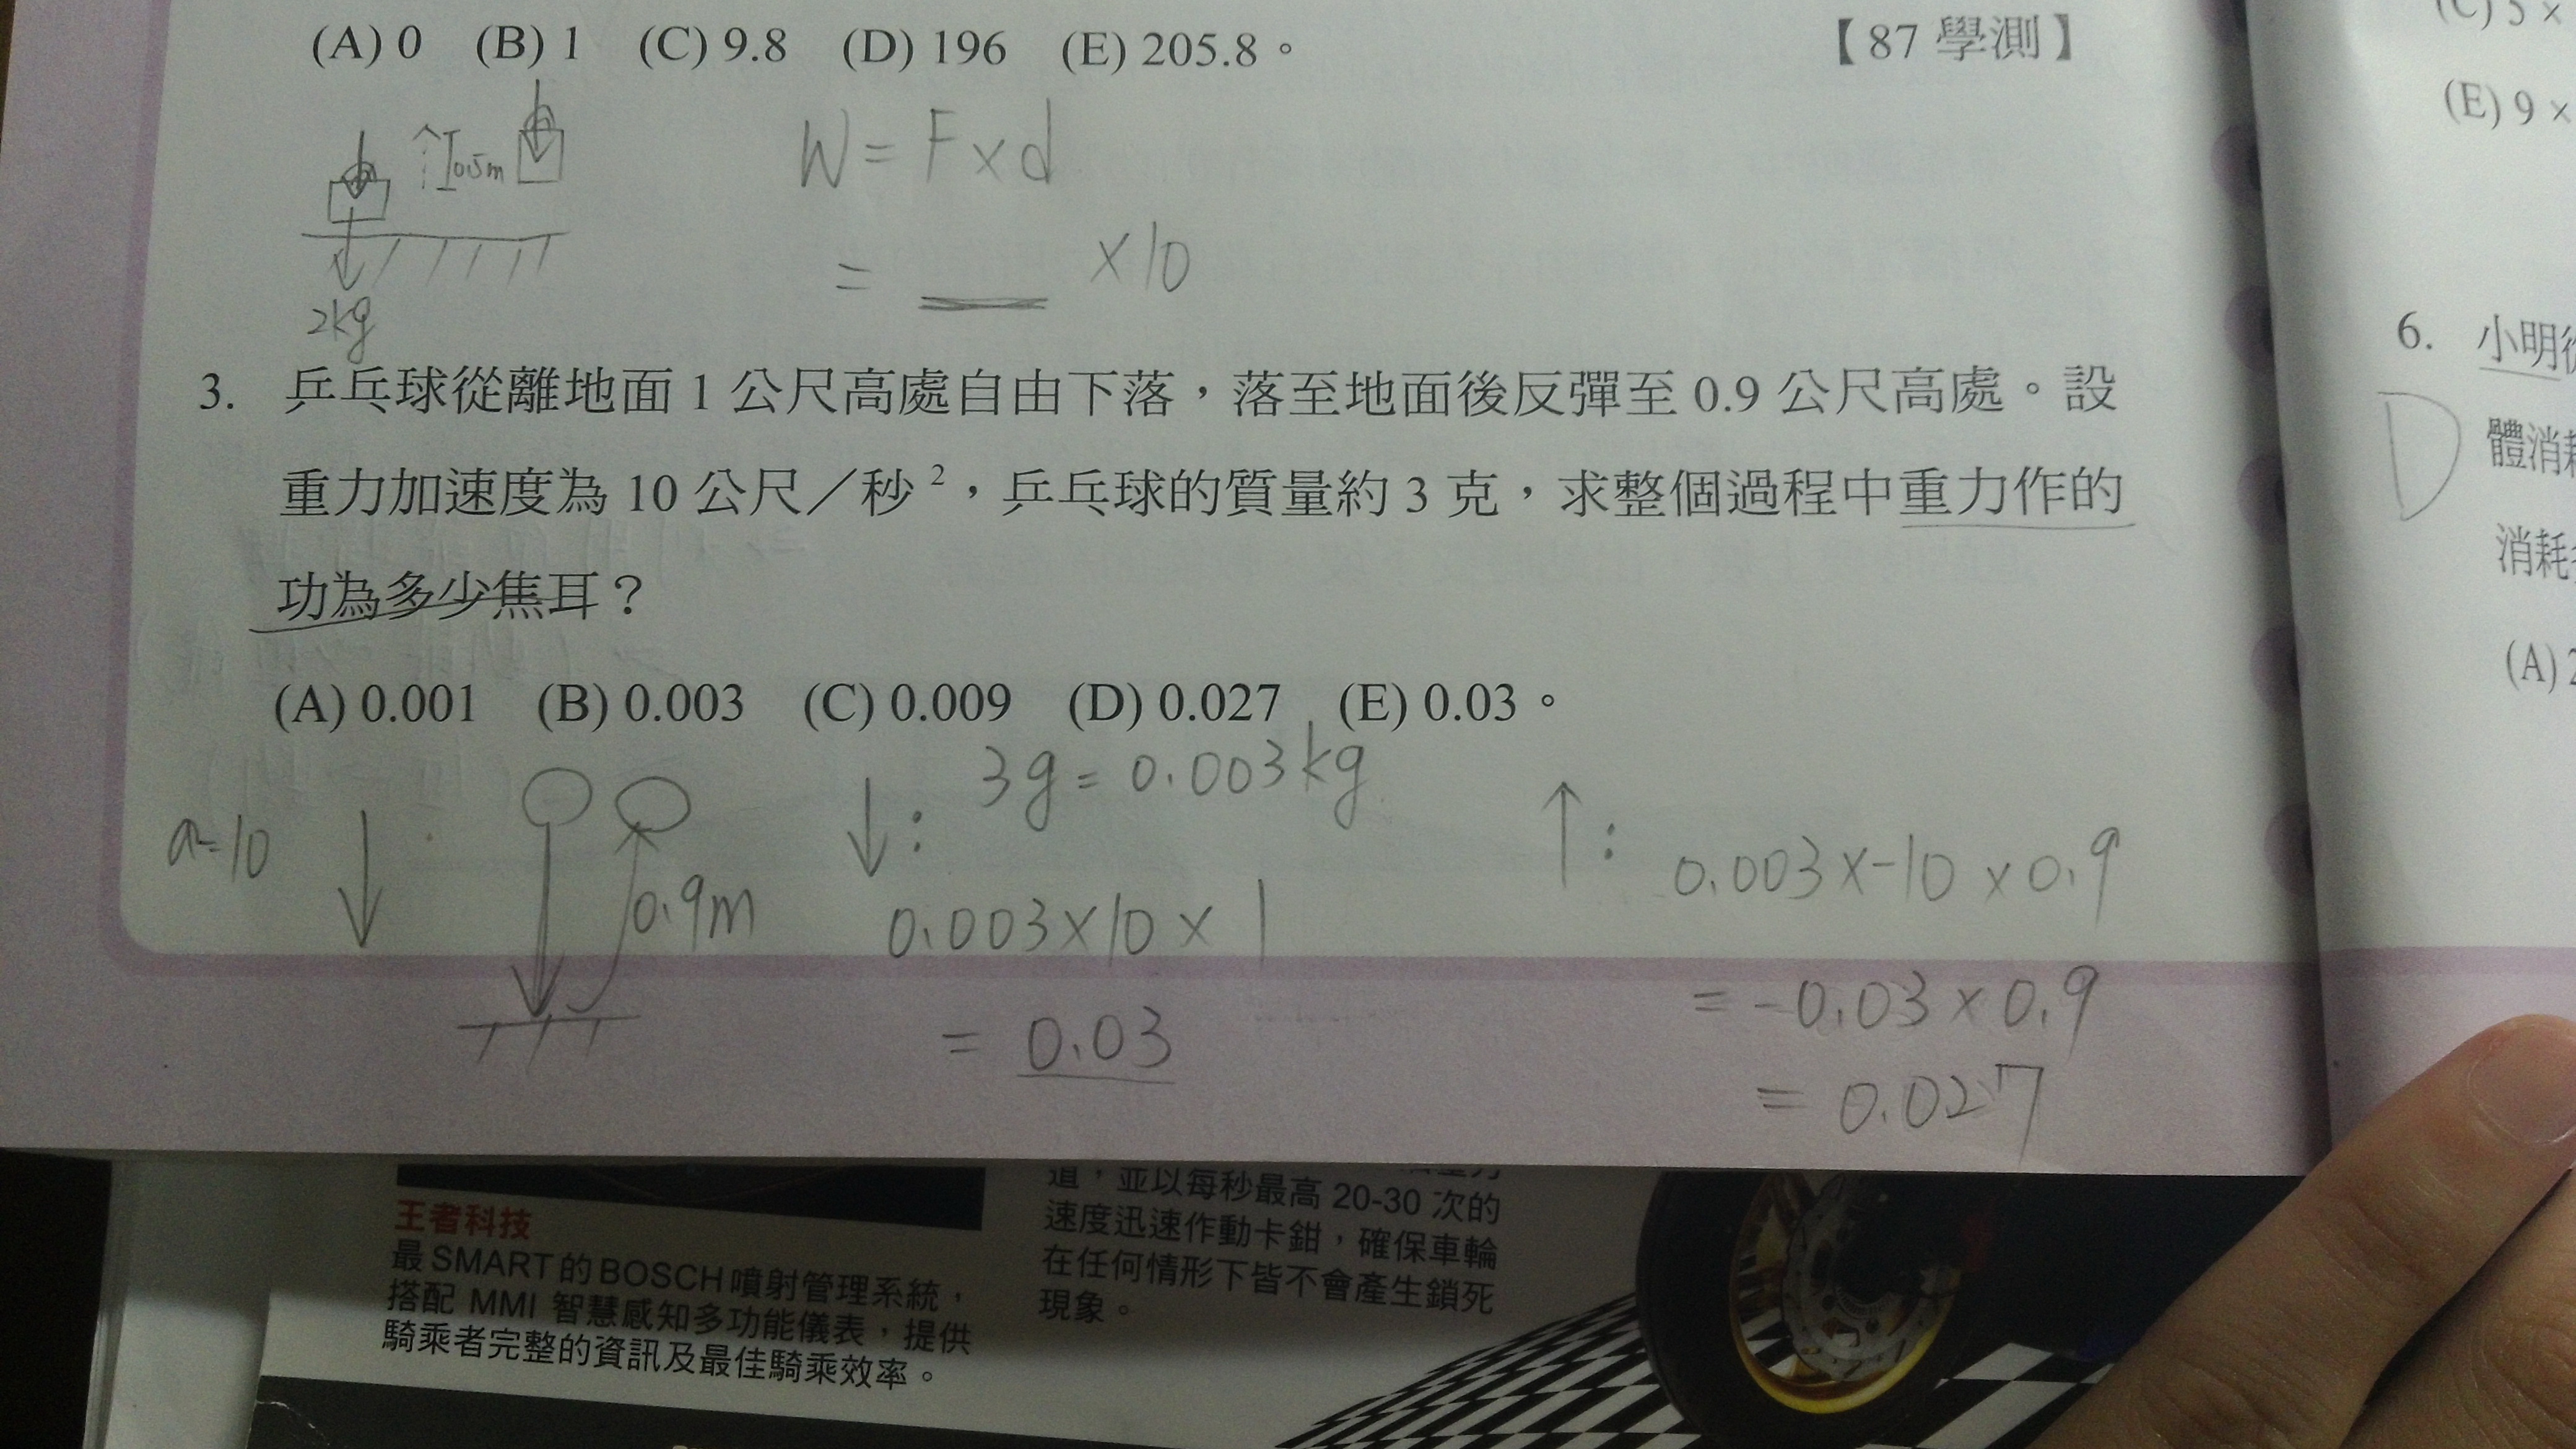 (A) 0 (B) 1 (C) 9.8 (D) 196 (E) 205.8。 【87 學測】
0.5m
W = F × d
= ___ × 10
2kg
3. 乒乓球從離地面 1 公尺高處自由下落，落至地面後反彈至 0.9 公尺高處。設
重力加速度為 10 公尺／秒²，乒乓球的質量約 3 克，求整個過程中重力作的
功為多少焦耳？
(A) 0.001 (B) 0.003 (C) 0.009 (D) 0.027 (E) 0.03。
3g = 0.003kg
a=10
0.9m
↓:
0.003×10×1
= 0.03
↑:
0.003×-10×0.9
= -0.03×0.9
= 0.027
(E) 9 ×
6. 小明
D
體消
消耗
(A)
王者科技
最SMART的BOSCH噴射管理系統，
搭配 MMI 智慧感知多功能儀表，提供
騎乘者完整的資訊及最佳騎乘效率。
道，並以每秒最高 20-30 次的
速度迅速作動卡鉗，確保車輪
在任何情形下皆不會產生鎖死
現象。